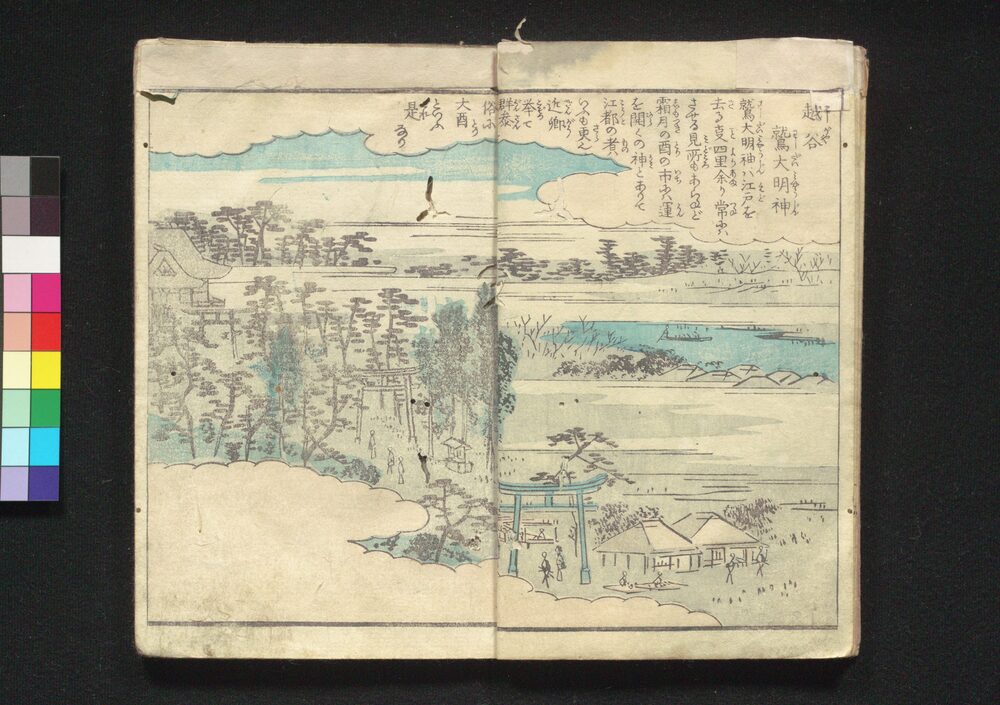 越谷
鷲大明神
鷲大明神ハ江戸を
去る事四里余り常に
させる見所もあらねど
霜月の酉の市にハ運
を開くの神とありて
江都の者ハ
いふも更也
近郷
挙て
群参
俗に
大酉
といふ
是
なり